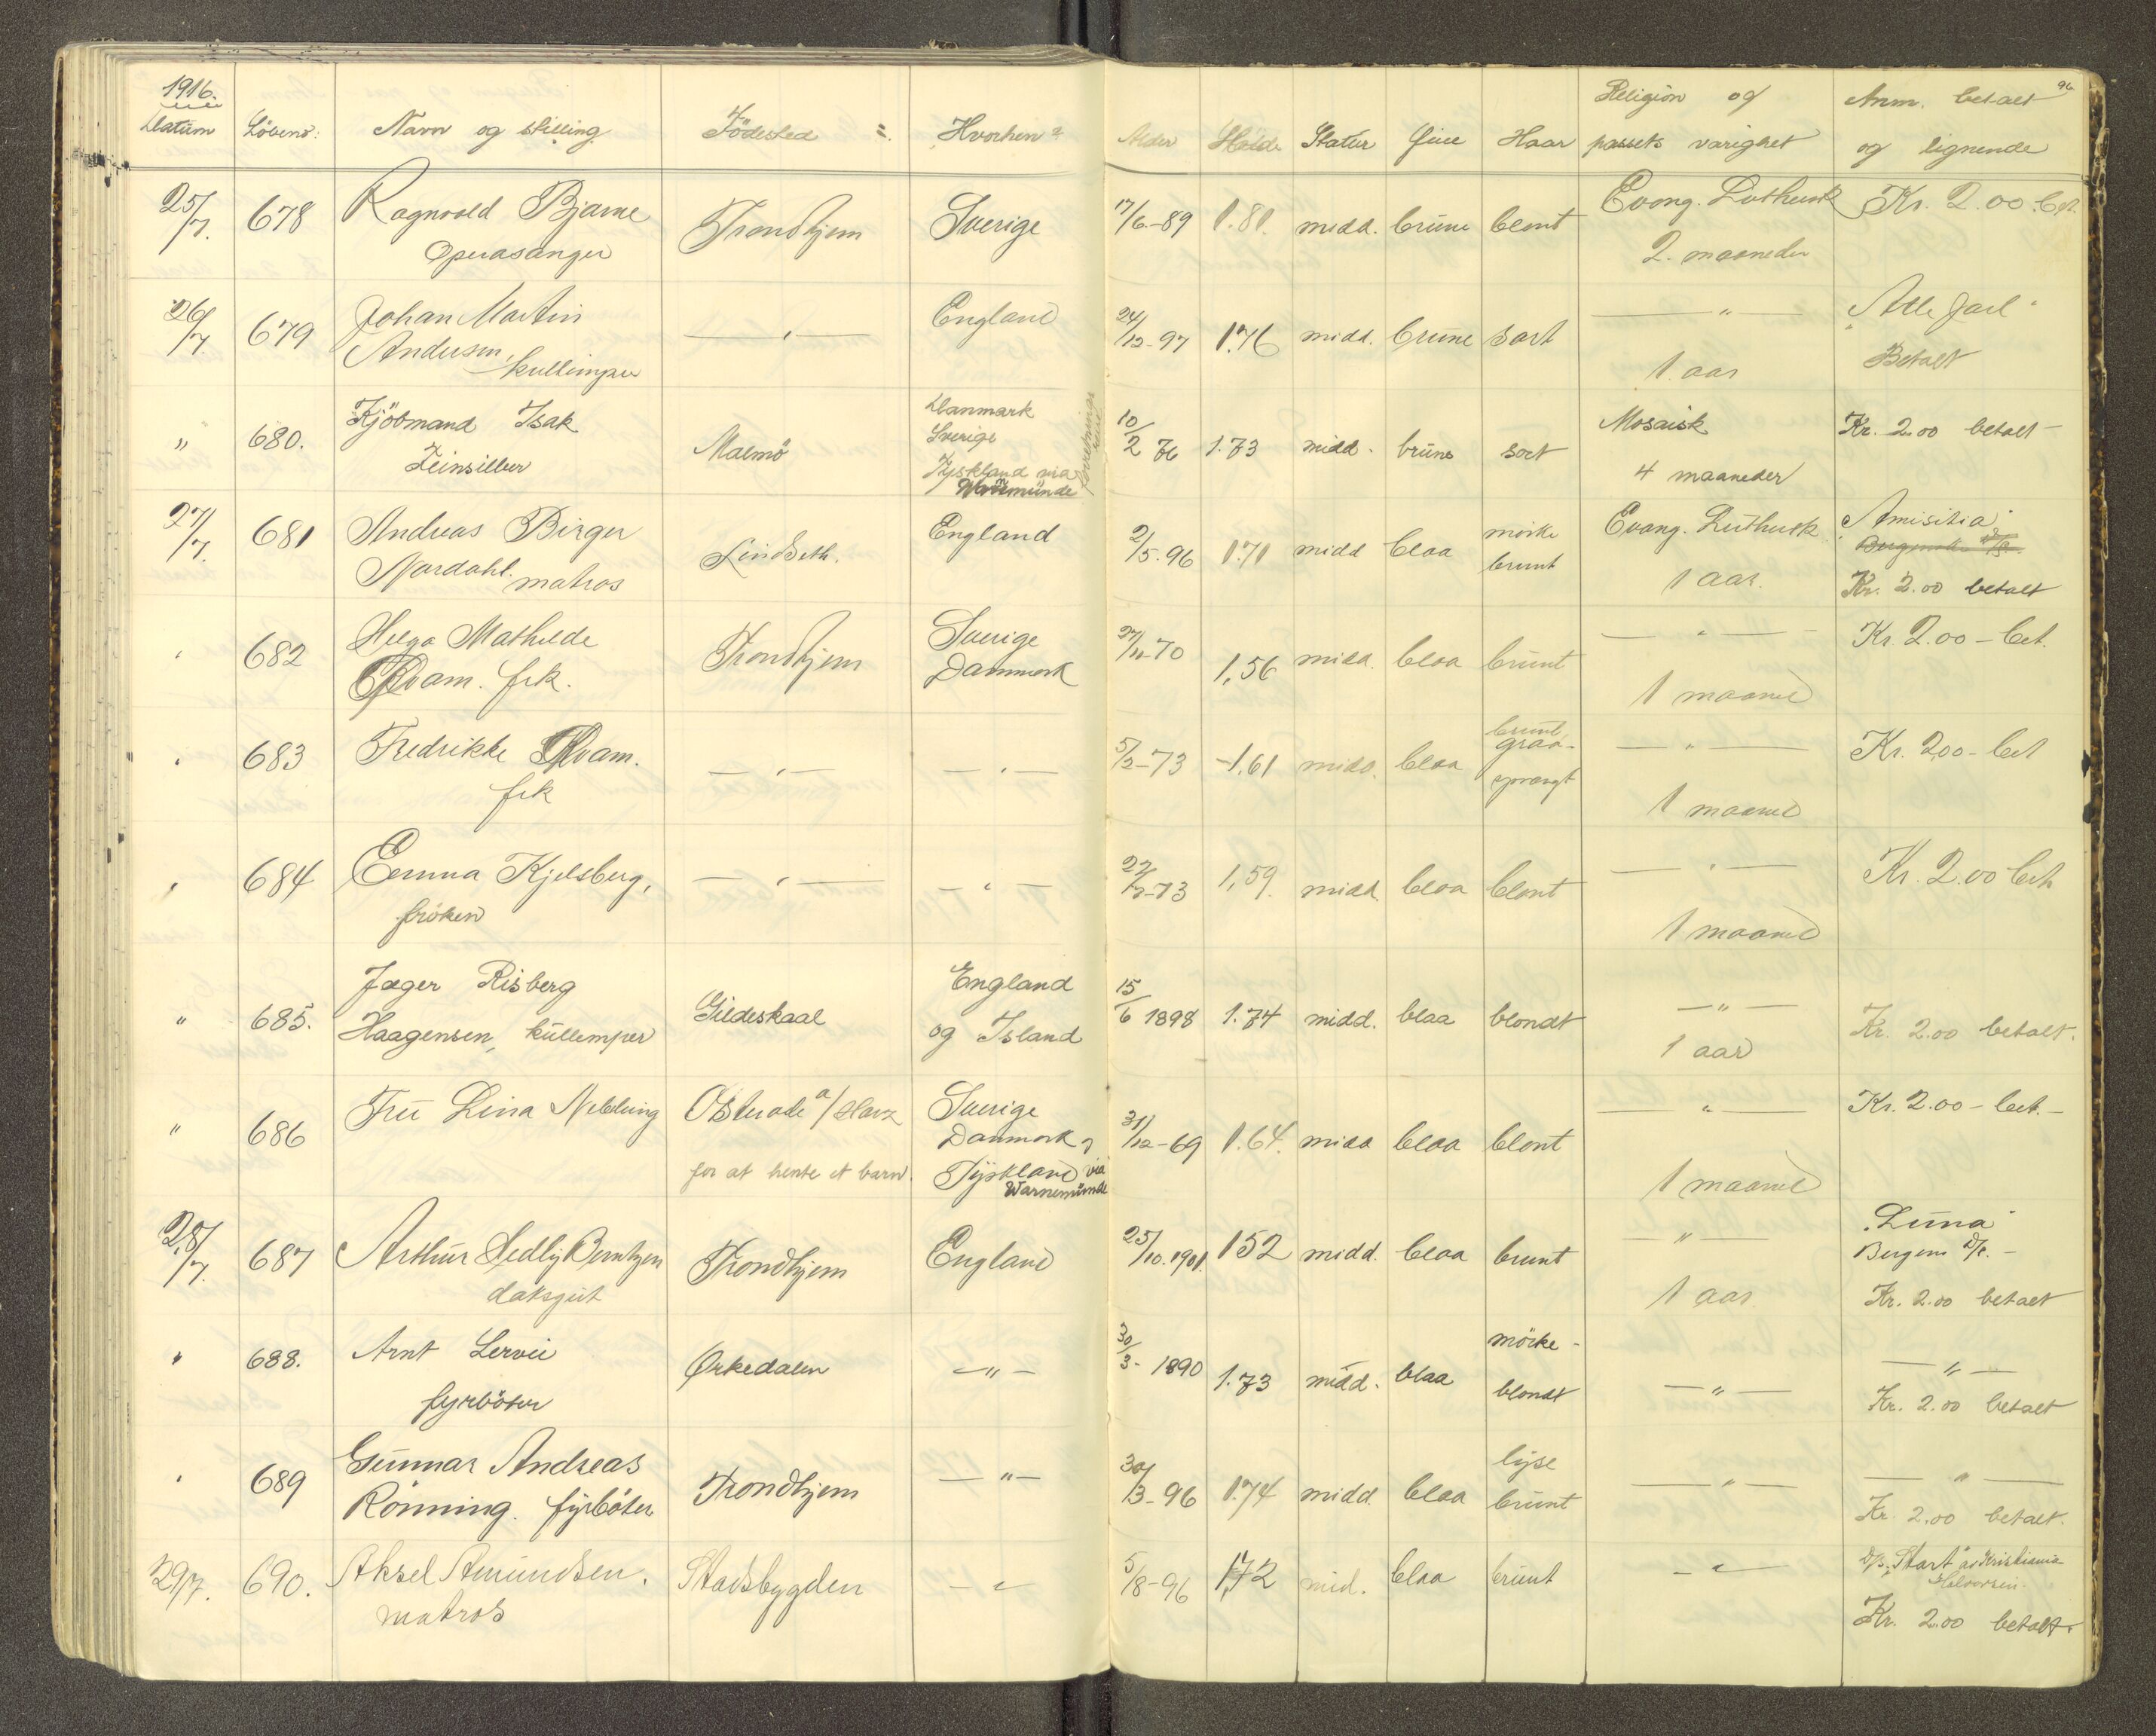 1916. Religion og Anm. betalt 96
Datum Löbeno: Navn og stilling. Födested =. Hvorhen? Alder Höide Statur Öine Haar passets varighet og lignende
25/7. 678 Ragnvald Bjarne Trondhjem Sverige 17/6-89 1.81. midd. brune blont Evang. Luthersk Kr. 2.00 bet.
Operasanger 2. maaneder
26/7. 679 Johan Martin —〃— England 24/12-97 1.76 midd. brune sort —〃— "Atle Jarl"
Andersen, kullemper 1 aar Betalt
〃 680. Kjöbmand Isak Malmö Danmark 10/2 76 1.73 midd. brune sort Mosaisk Kr. 2.00 betalt
Sverige
Tyskland via 4 maaneder
Warnemünde
forretningsreise
27/7. 681 Andreas Birger Lindseth. England 2/5.96 1.71 midd blaa mörke Evang. Luthersk "Amisitia"
Nordahl. matros brunt 1 aar. Kr. 2.00 betalt
〃 682 Helga Mathilde Trondhjem Sverige 27/11-70 1,56 midd. blaa brunt —〃— Kr. 2.00 - bet.
Kvam. frk. Danmark 1 maaned
〃 683 Fredrikke Kvam. —〃— —〃— 5/2-73 -1,61 midd. blaa brunt, —〃— Kr. 2.00 - bet
frk graa-
sprængt 1 maaned
〃 684 Emma Kjelsberg, —〃— —〃— 22/7-73 1,59. midd. blaa blont —〃— Kr. 2.00 bet.
fröken 1 maaned
〃 685. Jæger Risberg Gildeskaal England 15/6 1898 1.74 midd. blaa blondt —〃— Kr. 2.00 betalt.
Haagensen, kullemper og Island 1 aar
〃 686 Fru Lina Nebelung Osterode a/Harz Sverige 31/12-69 1.64. midd blaa blont —〃— Kr. 2.00 - bet. -
Danmark og
for at hente et barn. Tyskland via 1 maaned
Warnemünde
28/7. 687 Arthur Hedly Berntzen Trondhjem England 25/10.1901. 152 midd. blaa brunt —〃— "Luna"
daksgut 1 aar Bergens D/s. -
Kr. 2.00 betalt
〃 688. Arnt Lervik Ørkedalen —〃— 30/3- 1890 1.73 midd. blaa mörke- —〃— —〃—
fyrböter blondt Kr. 2.00 betalt
〃 689 Gunnar Andreas Trondhjem —〃— 30/3-96 1.74 midd. blaa lyse —〃— —〃—
Rönning. fyrböter brunt Kr. 2.00 betalt.
29/7. 690. Aksel Amundsen. Stadsbygden —〃— 5/8-96 1,72 mid. blaa brunt —〃— D/s. "Start" av Kristiania
matros
Kr. 2.00 betalt.